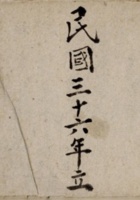 民國三十六年立